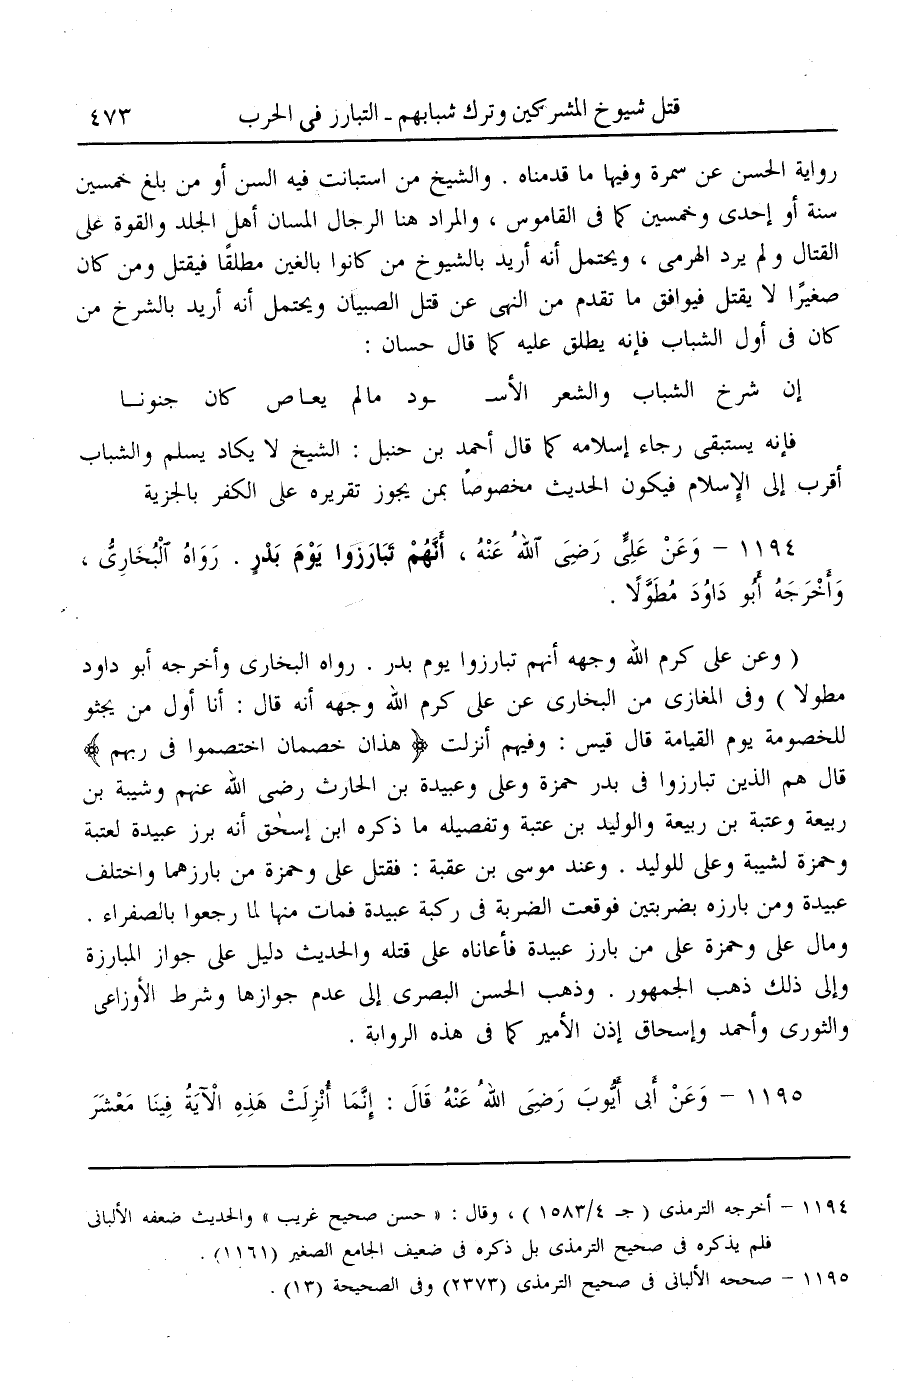 قتل شيوخ المشركين وترك شبابهم ـ التبارز فى الحرب ٤٧٣
رواية الحسن عن سمرة وفيها ما قدمناه . والشيخ من استبانت فيه السن أو من بلغ خمسين
سنة أو إحدى وخمسين كما فى القاموس ، والمراد هنا الرجال المسان أهل الجلد والقوة على
القتال ولم يرد الهرمى ، ويحتمل أنه أريد بالشيوخ من كانوا بالغين مطلقًا فيقتل ومن كان
صغيرًا لا يقتل فيوافق ما تقدم من النهى عن قتل الصبيان ويحتمل أنه أريد بالشرخ من
كان فى أول الشباب فإنه يطلق عليه كما قال حسان :
إن شرخ الشباب والشعر الأسـ ـود مالم يعـاص كان جنونـا
فإنه يستبقى رجاء إسلامه كما قال أحمد بن حنبل : الشيخ لا يكاد يسلم والشباب
أقرب إلى الإسلام فيكون الحديث مخصوصاً بمن يجوز تقريره على الكفر بالجزية
١١٩٤ – وَعَنْ عَلِىٍّ رَضِىَ ٱللهُ عَنْهُ ، أَنَّهُمْ تَبَارَزوا يَوْمَ بَدْرٍ . رَوَاهُ ٱلْبُخَارِىُّ ،
وَأَخْرَجَهُ أَبُو دَاوُدَ مُطَوَّلًا .
( وعن على كرم الله وجهه أنهم تبارزوا يوم بدر . رواه البخارى وأخرجه أبو داود
مطولا ) وفى المغازى من البخارى عن على كرم الله وجهه أنه قال : أنا أول من يجثو
للخصومة يوم القيامة قال قيس : وفيهم أنزلت ﴿ هذان خصمان اختصموا فى ربهم ﴾
قال هم الذين تبارزوا فى بدر حمزة وعلى وعبيدة بن الحارث رضى الله عنهم وشيبة بن
ربيعة وعتبة بن ربيعة والوليد بن عتبة وتفصيله ما ذكره ابن إسحٰق أنه برز عبيدة لعتبة
وحمزة لشيبة وعلى للوليد . وعند موسى بن عقبة : فقتل على وحمزة من بارزهما واختلف
عبيدة ومن بارزه بضربتين فوقعت الضربة فى ركبة عبيدة فمات منها لما رجعوا بالصفراء .
ومال على وحمزة على من بارز عبيدة فأعاناه على قتله والحديث دليل على جواز المبارزة
وإلى ذلك ذهب الجمهور . وذهب الحسن البصرى إلى عدم جوازها وشرط الأوزاعى
والثورى وأحمد وإسحاق إذن الأمير كما فى هذه الرواية .
١١٩٥ – وَعَنْ أَبى أَيُّوبَ رَضِىَ اللهُ عَنْهُ قَالَ : إِنَّمَا أُنْزِلَتْ هَذِهِ الْآيَةُ فِينَا مَعْشَرَ
١١٩٤ – أخرجه الترمذى ( جـ ١٥٨٣/٤ ) ، وقال : « حسن صحيح غريب » والحديث ضعفه الألبانى
فلم يذكره فى صحيح الترمذى بل ذكره فى ضعيف الجامع الصغير (١١٦١) .
١١٩٥ – صححه الألبانى فى صحيح الترمذى (٢٣٧٣) وفى الصحيحة (١٣) .